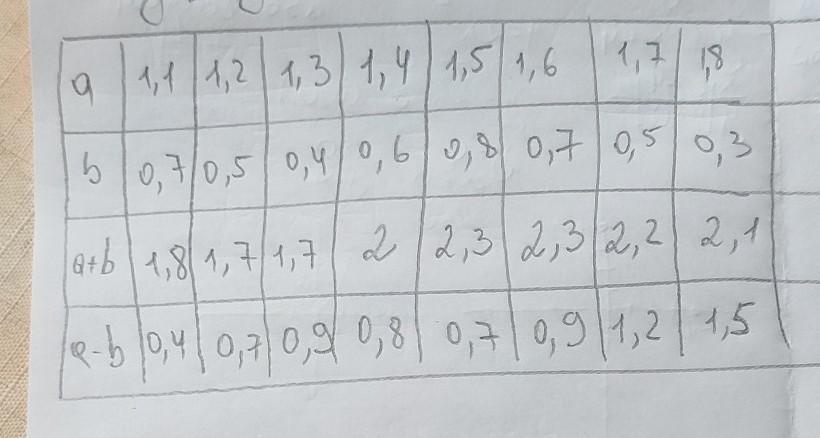 a 1,1 1,2 1,3 1,4 1,5 1,6 1,7 1,8
b 0,7 0,5 0,4 0,6 0,8 0,7 0,5 0,3
a+b 1,8 1,7 1,7 2 2,3 2,3 2,2 2,1
a-b 0,4 0,7 0,9 0,8 0,7 0,9 1,2 1,5